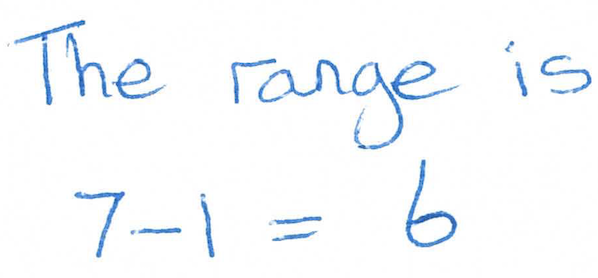 The range is
7-1 = 6